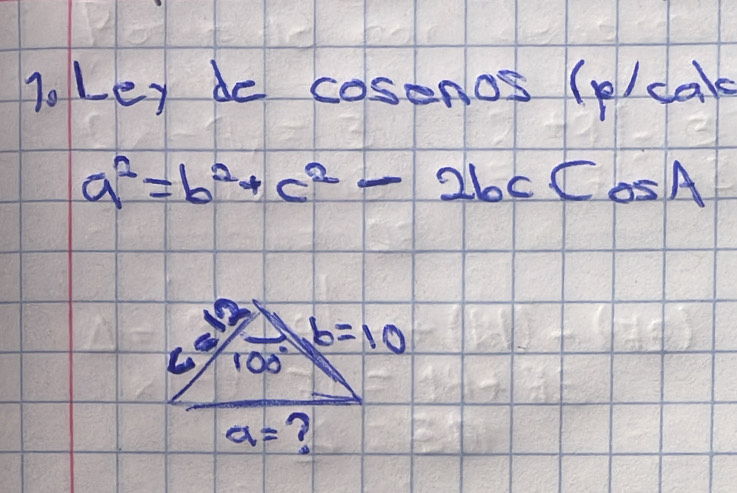 1. Ley de cosenos (p/calc
a²=b²+c² - 2bc CosA
c=12
b=10
100°
a=?